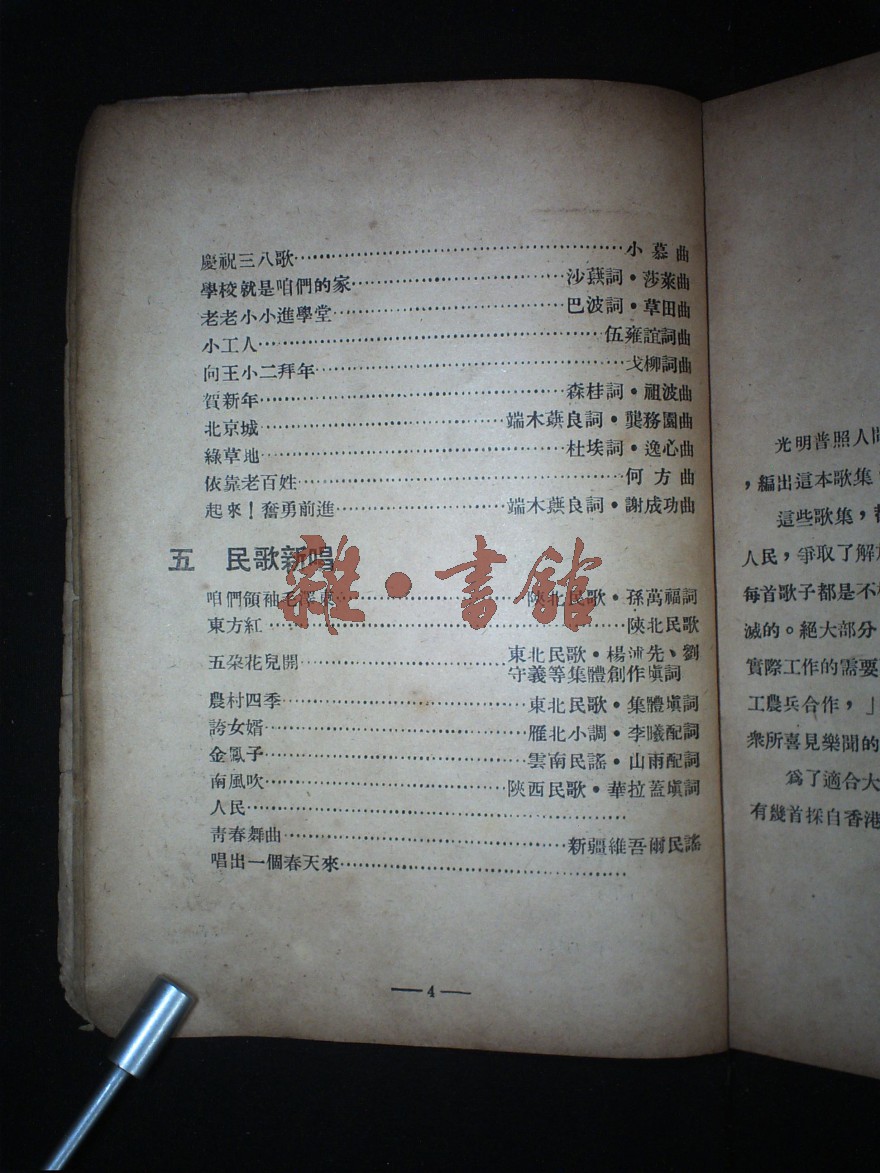 慶祝三八歌……小慕曲
學校就是咱們的家……沙蕻詞•莎萊曲
老老小小進學堂……巴波詞•草田曲
小工人……伍雍誼詞曲
向王小二拜年……戈柳詞曲
賀新年……森桂詞•祖波曲
北京城……端木蕻良詞•龔務園曲
綠草地……杜埃詞•逸心曲
依靠老百姓……何方曲
起來！奮勇前進……端木蕻良詞•謝成功曲
五 民歌新唱
咱們領袖毛澤東……陝北民歌•孫萬福詞
東方紅……陝北民歌
五朶花兒開……東北民歌•楊浦先、劉
守義等集體創作塡詞
農村四季……東北民歌•集體塡詞
誇女婿……雁北小調•李曦配詞
金鳳子……雲南民謠•山雨配詞
南風吹……陝西民歌•華拉蓋塡詞
人民……
靑春舞曲……新疆維吾爾民謠
唱出一個春天來……
—4—
雜•書館
光明普照人間
，編出這本歌集
這些歌集，
人民，爭取了解放
每首歌子都是不
滅的。絕大部分
實際工作的需要
工農兵合作，」
衆所喜見樂聞的
爲了適合大
有幾首採自香港